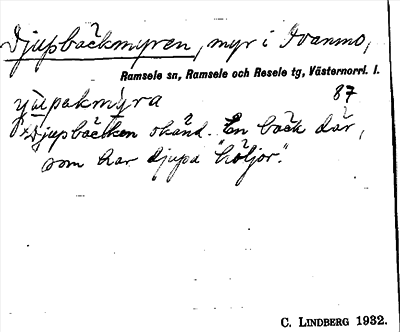 Djupbäckmyren, myr i Ivanmo,
Ramsele sn, Ramsele och Resele tg, Västernorrl. l.
yu̇pakmy̆ra 87
Djupbäcken okänd. En bäck där,
som har djupa "höljor".
C. LINDBERG 1932.